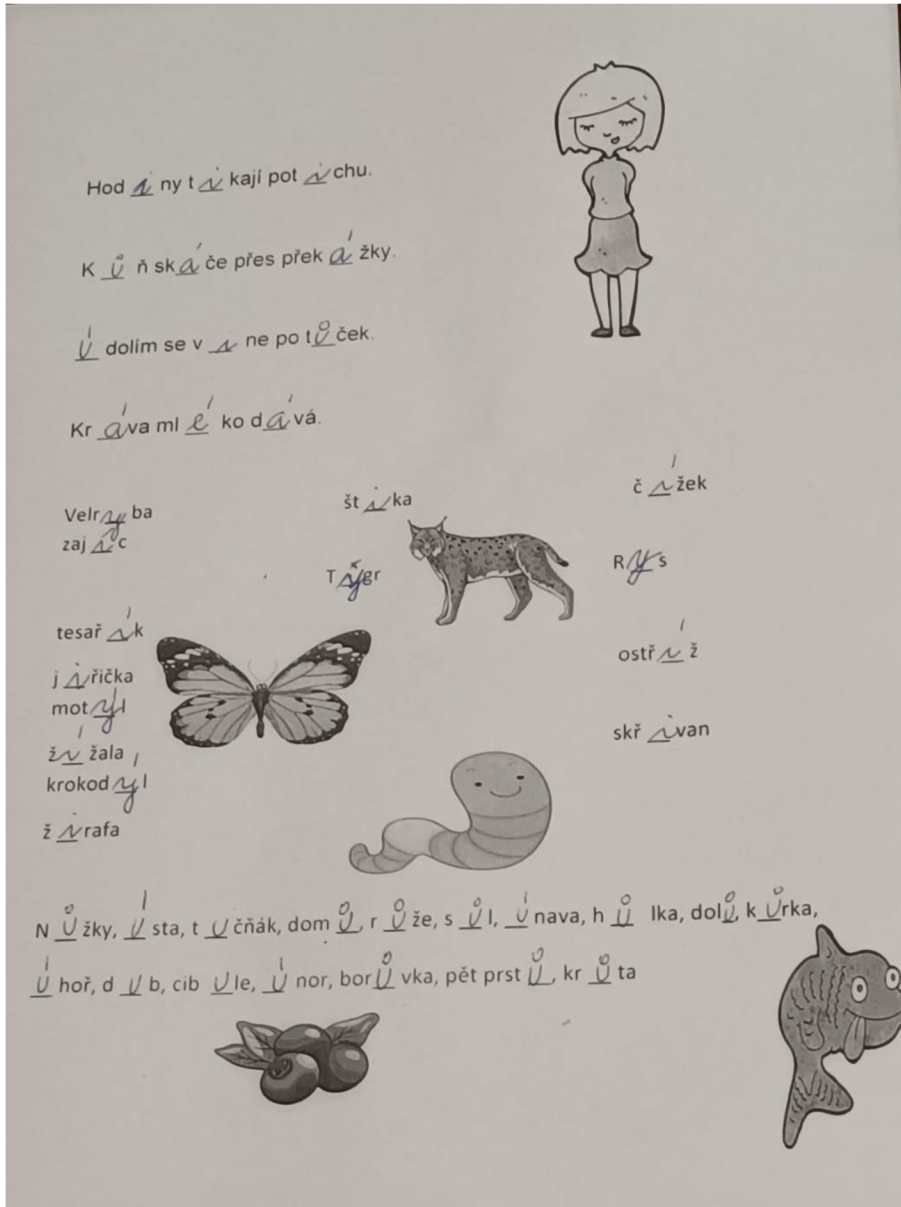 Hodiny tikají potichu.
Kůň skáče přes překážky.
Údolím se vine potůček.
Kráva mléko dává.
Velryba
zajíc
tesařík
jiřička
motýl
žížala
krokodýl
žirafa
štika
Tygr
čížek
Rys
ostříž
skřivan
Nůžky, ústa, tučňák, domů, růže, sůl, únava, hůlka, dolů, kůrka,
úhoř, dub, cibule, únor, borůvka, pět prstů, krůta